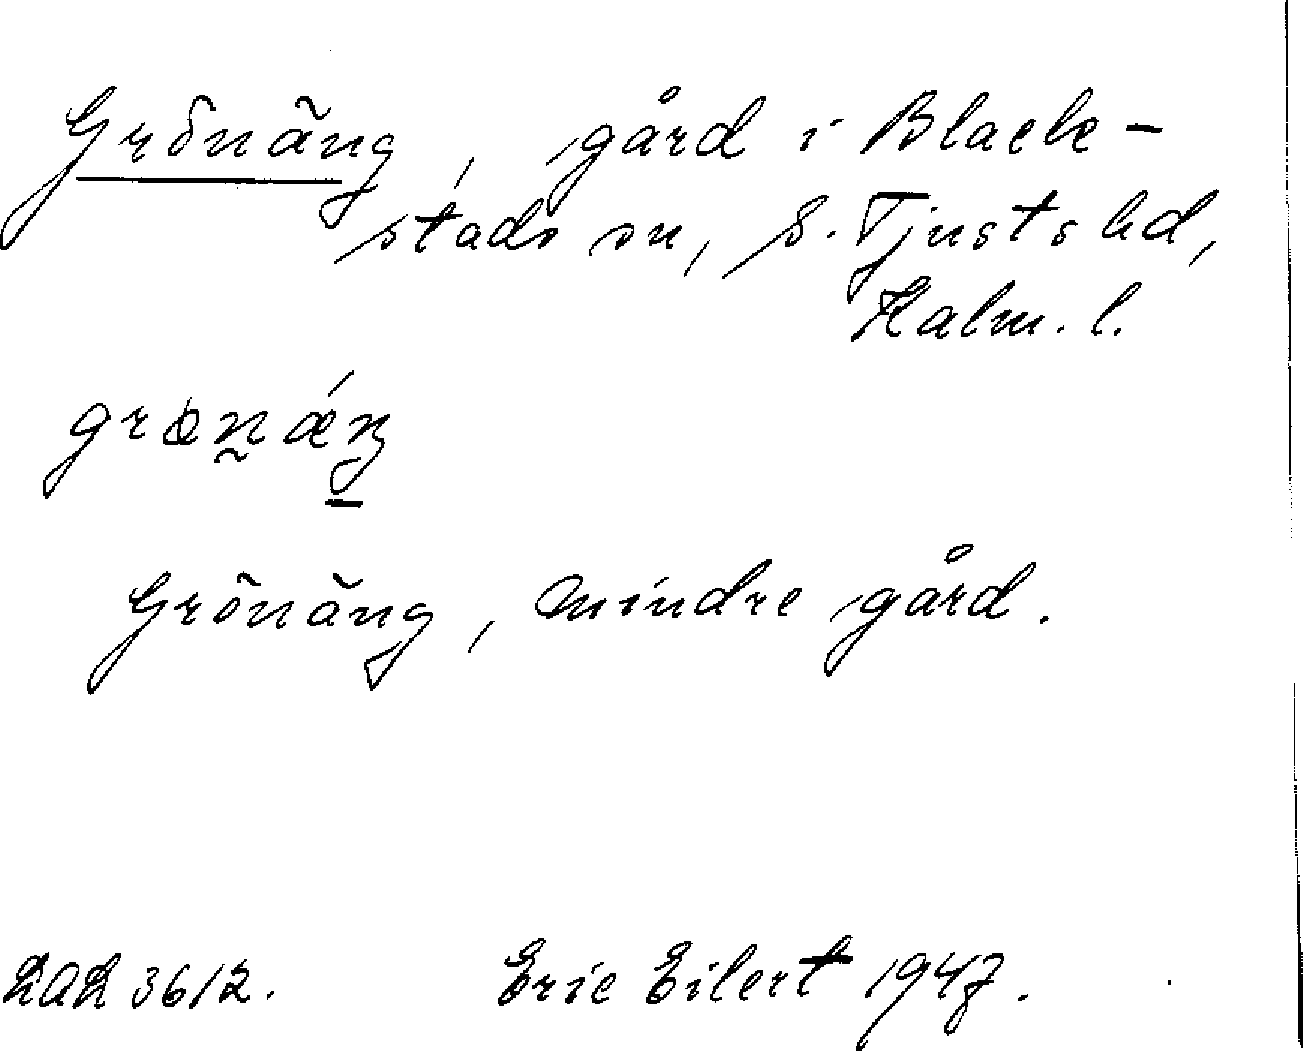 Grönäng, gård i Blacke-
stads sn, S. Tjusts hd,
Kalm. l.
Grönäng, mindre gård.
Eric Eilert 1947.